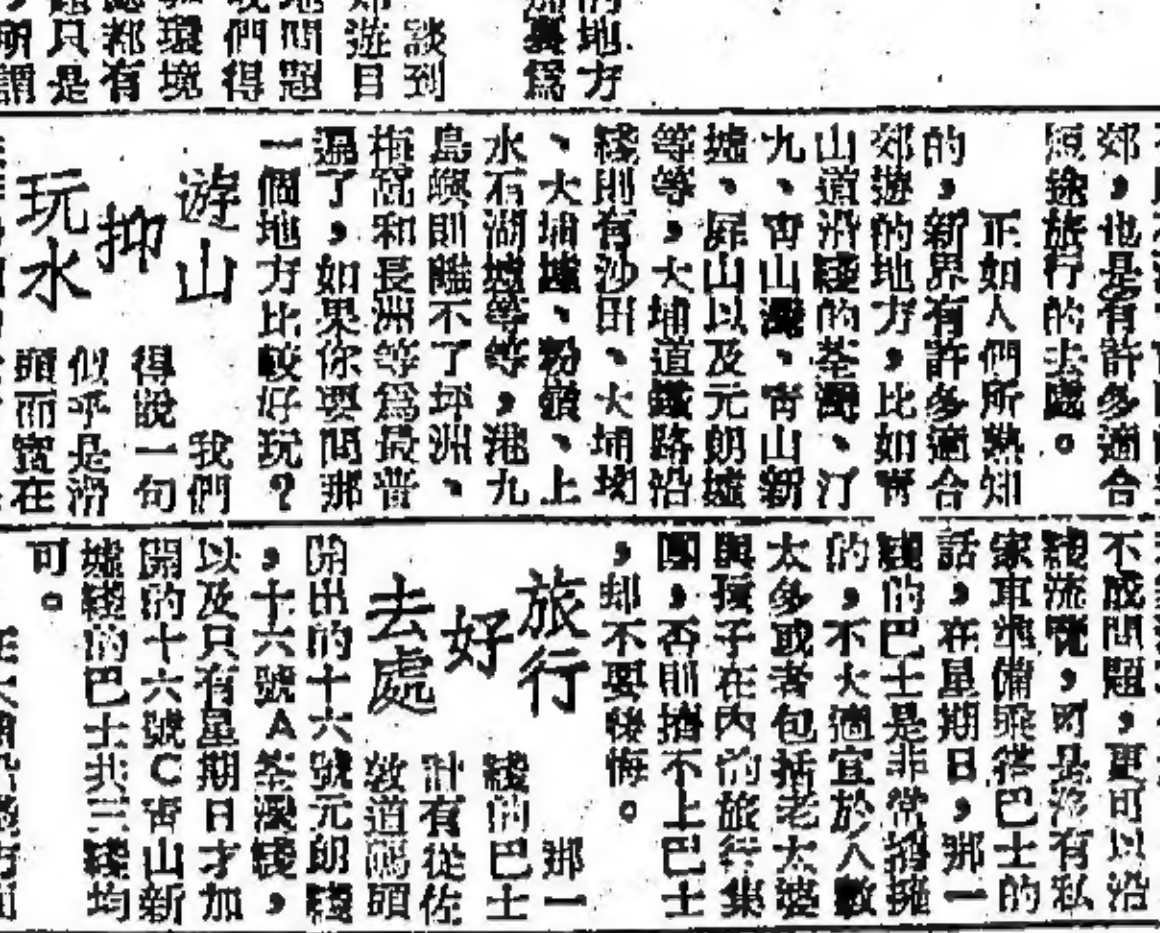 的地方
談到
郊，也是有許多適合
短途旅行的去處。
正如人們所熟知
的，新界有許多適合
郊遊的地方，比如青
山道沿綫的荃灣、汀
九、青山灣、青山新
墟、屏山以及元朗墟
等等，大埔道鐵路沿
綫則有沙田、大埔墟
、大埔墟、粉嶺、上
水石湖墟等等，港九
島嶼則離不了坪洲、
梅窩和長洲等爲最普
遍了，如果你要問那
一個地方比較好玩？
遊山
抑
玩水
我們
得說一句
似乎是滑
頭而實在
不成問題，更可以沿
綫流覽，可是沒有私
家車準備乘搭巴士的
話，在星期日，那一
綫的巴士是非常擠擁
的，不大適宜於人數
太多或者包括老太婆
與孩子在內的旅行集
團，否則擠不上巴士
，却不要後悔。
旅行
好
去處
那一
綫的巴士
計有從佐
敦道碼頭
開出的十六號元朗綫
，十六號A荃灣綫，
以及只有星期日才加
開的十六號C青山新
墟綫的巴士共三綫均
可。